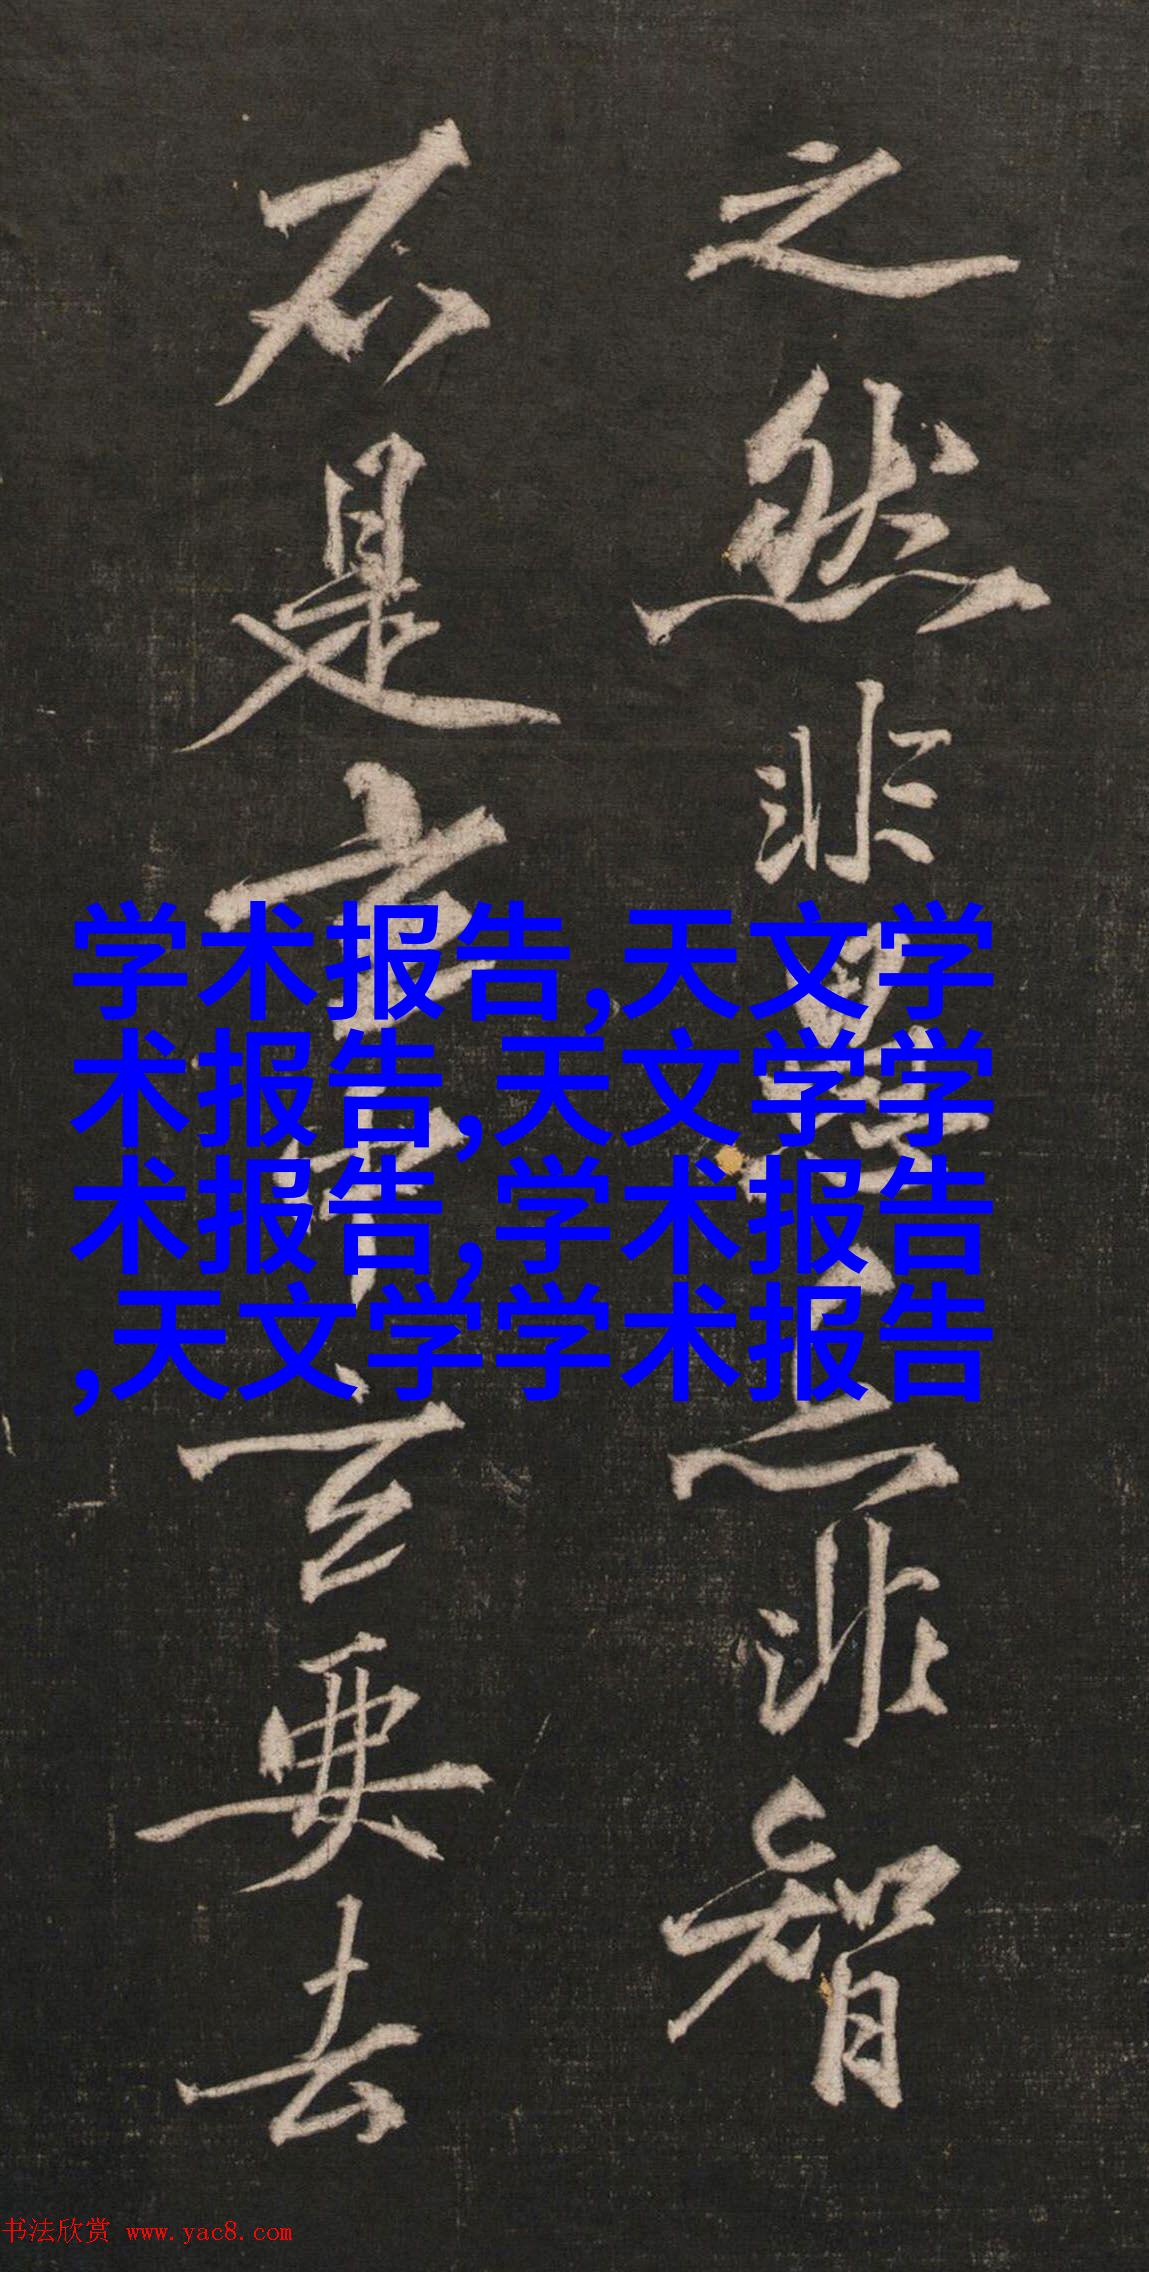 之然非 非智
不是 要去
学术报告,天文学
术报告,天文学学
术报告,学术报告
,天文学学术报告
书法欣赏 www.yac8.com